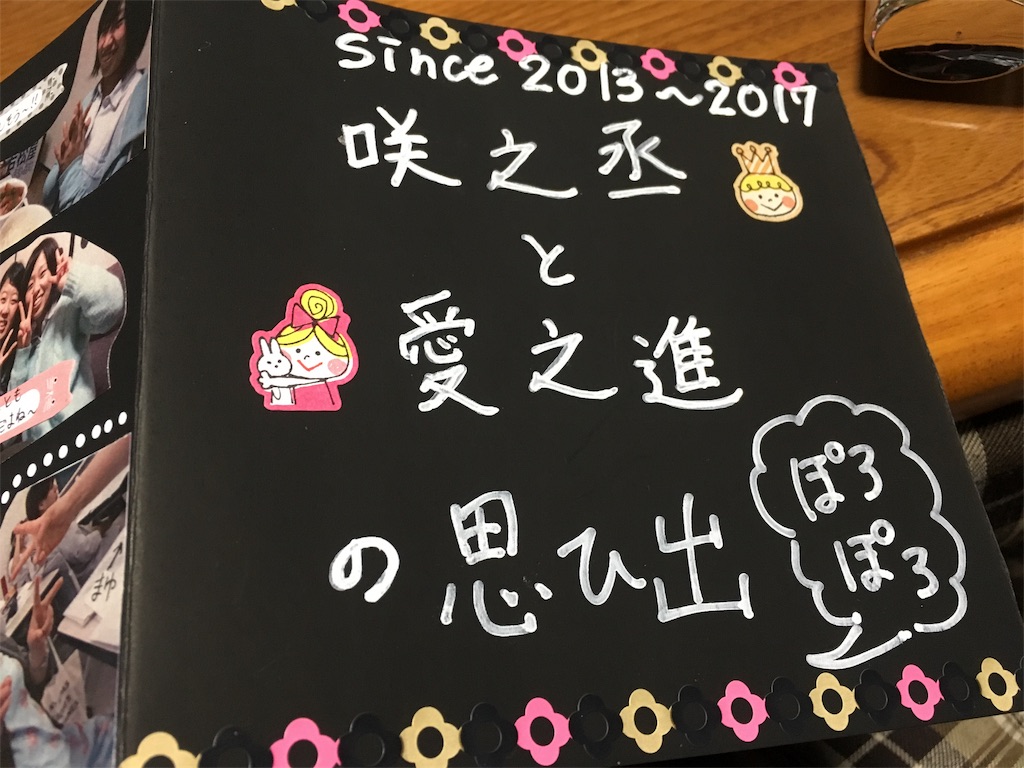 since 2013〜2017
咲之丞
と
愛之進
の思ひ出
ぽろ
ぽろ
とも
まゆ